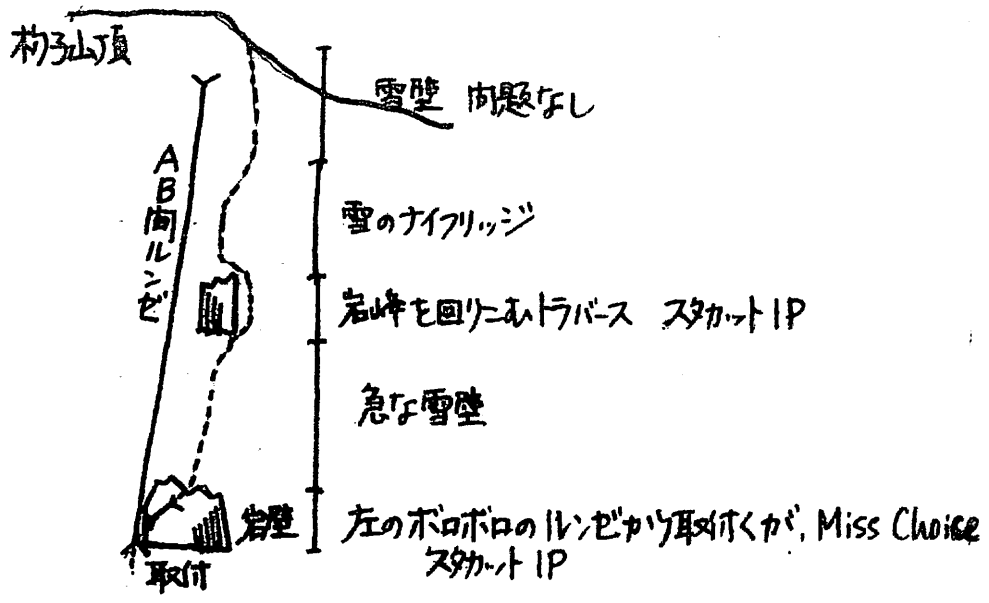 杓子山頂
雪壁 問題なし
AB間ルンゼ
雪のナイフリッジ
岩峰を回りこむトラバース スタカット1P
急な雪壁
岩壁
左のボロボロのルンゼから取付くが、Miss Choice
スタカット1P
取付